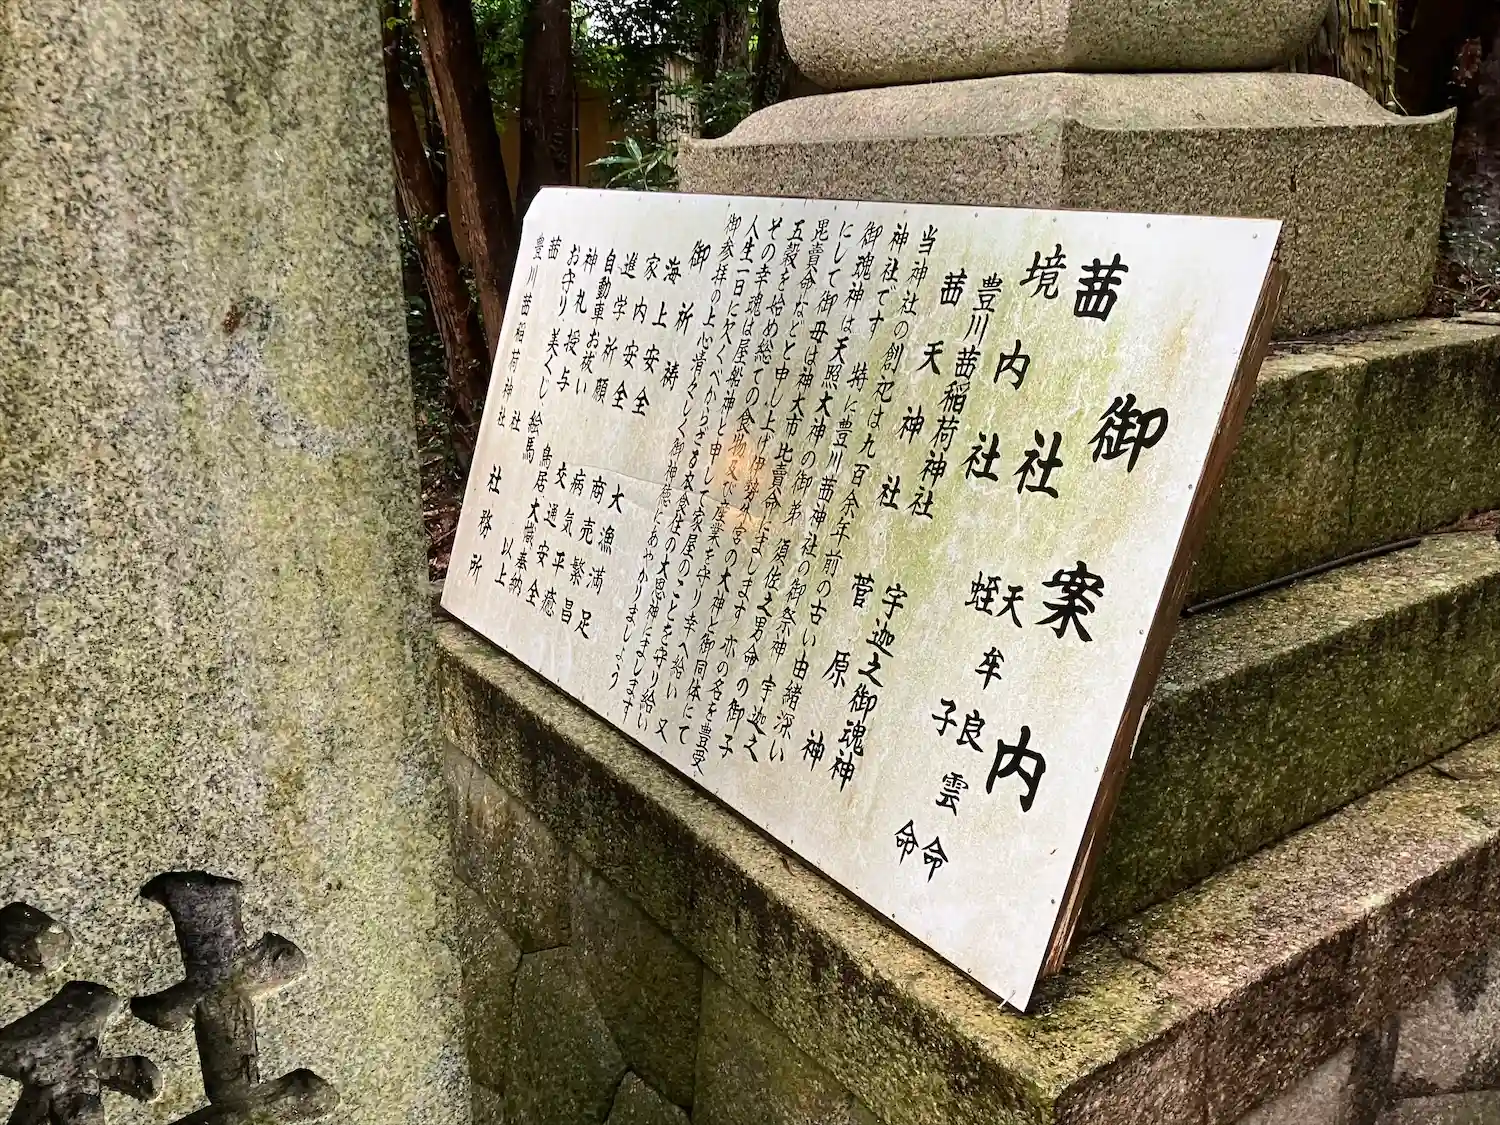 御案内
茜社 天牟良雲命
境内社 蛭子命
豊川茜稲荷神社 宇迦之御魂神
茜天神社 菅原神
当神社の創祀は九百余年前の古い由緒深い
神社です 特に豊川茜神社の御祭神 宇迦之
御魂神は天照大神の御弟 須佐之男命の御子
にして御母は神大市比賣命にましします 亦の名を豊受
毘賣命などと申し上げ伊勢外宮の大神と御同体にて
五穀を始め総ての食物及び産業を守り幸へ給い 又
その幸魂は屋船神と申して家屋のことを守り給い
人生一日に欠くべからざる衣食住の大恩神にましします
御参拝の上心清々しく御神徳にあやかりましょう
御祈祷
海上安全 大漁満足
家内安全 商売繁昌
進学祈願 病気平癒
自動車お祓い 交通安全
神札授与 鳥居大幟奉納
お守り 美くじ 絵馬 以上
茜神社
豊川茜稲荷神社 社務所
社